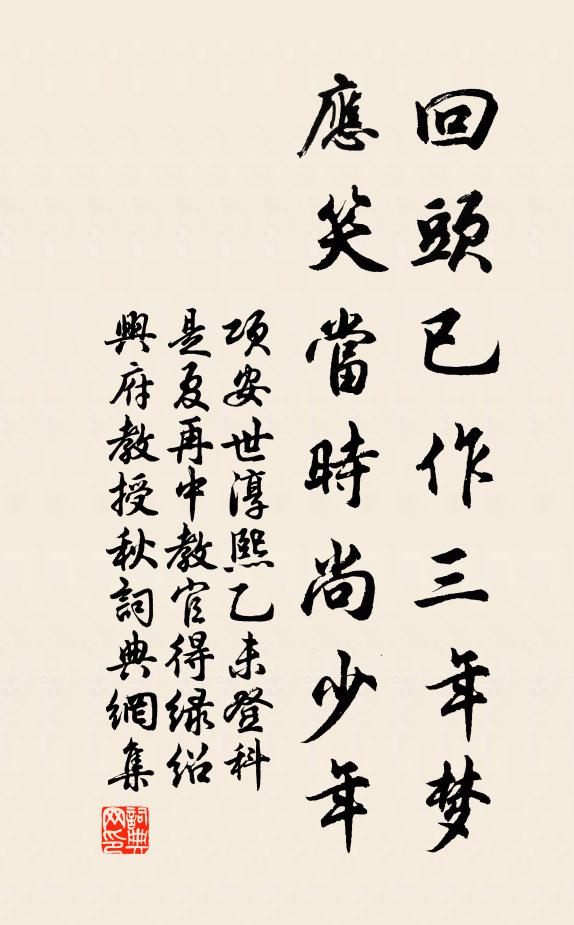 回頭已作三年梦
應笑當時尚少年
项安世淳熙乙未登科
是夏再中教官得绿绍
興府教授秋詞典網集
詞典网印